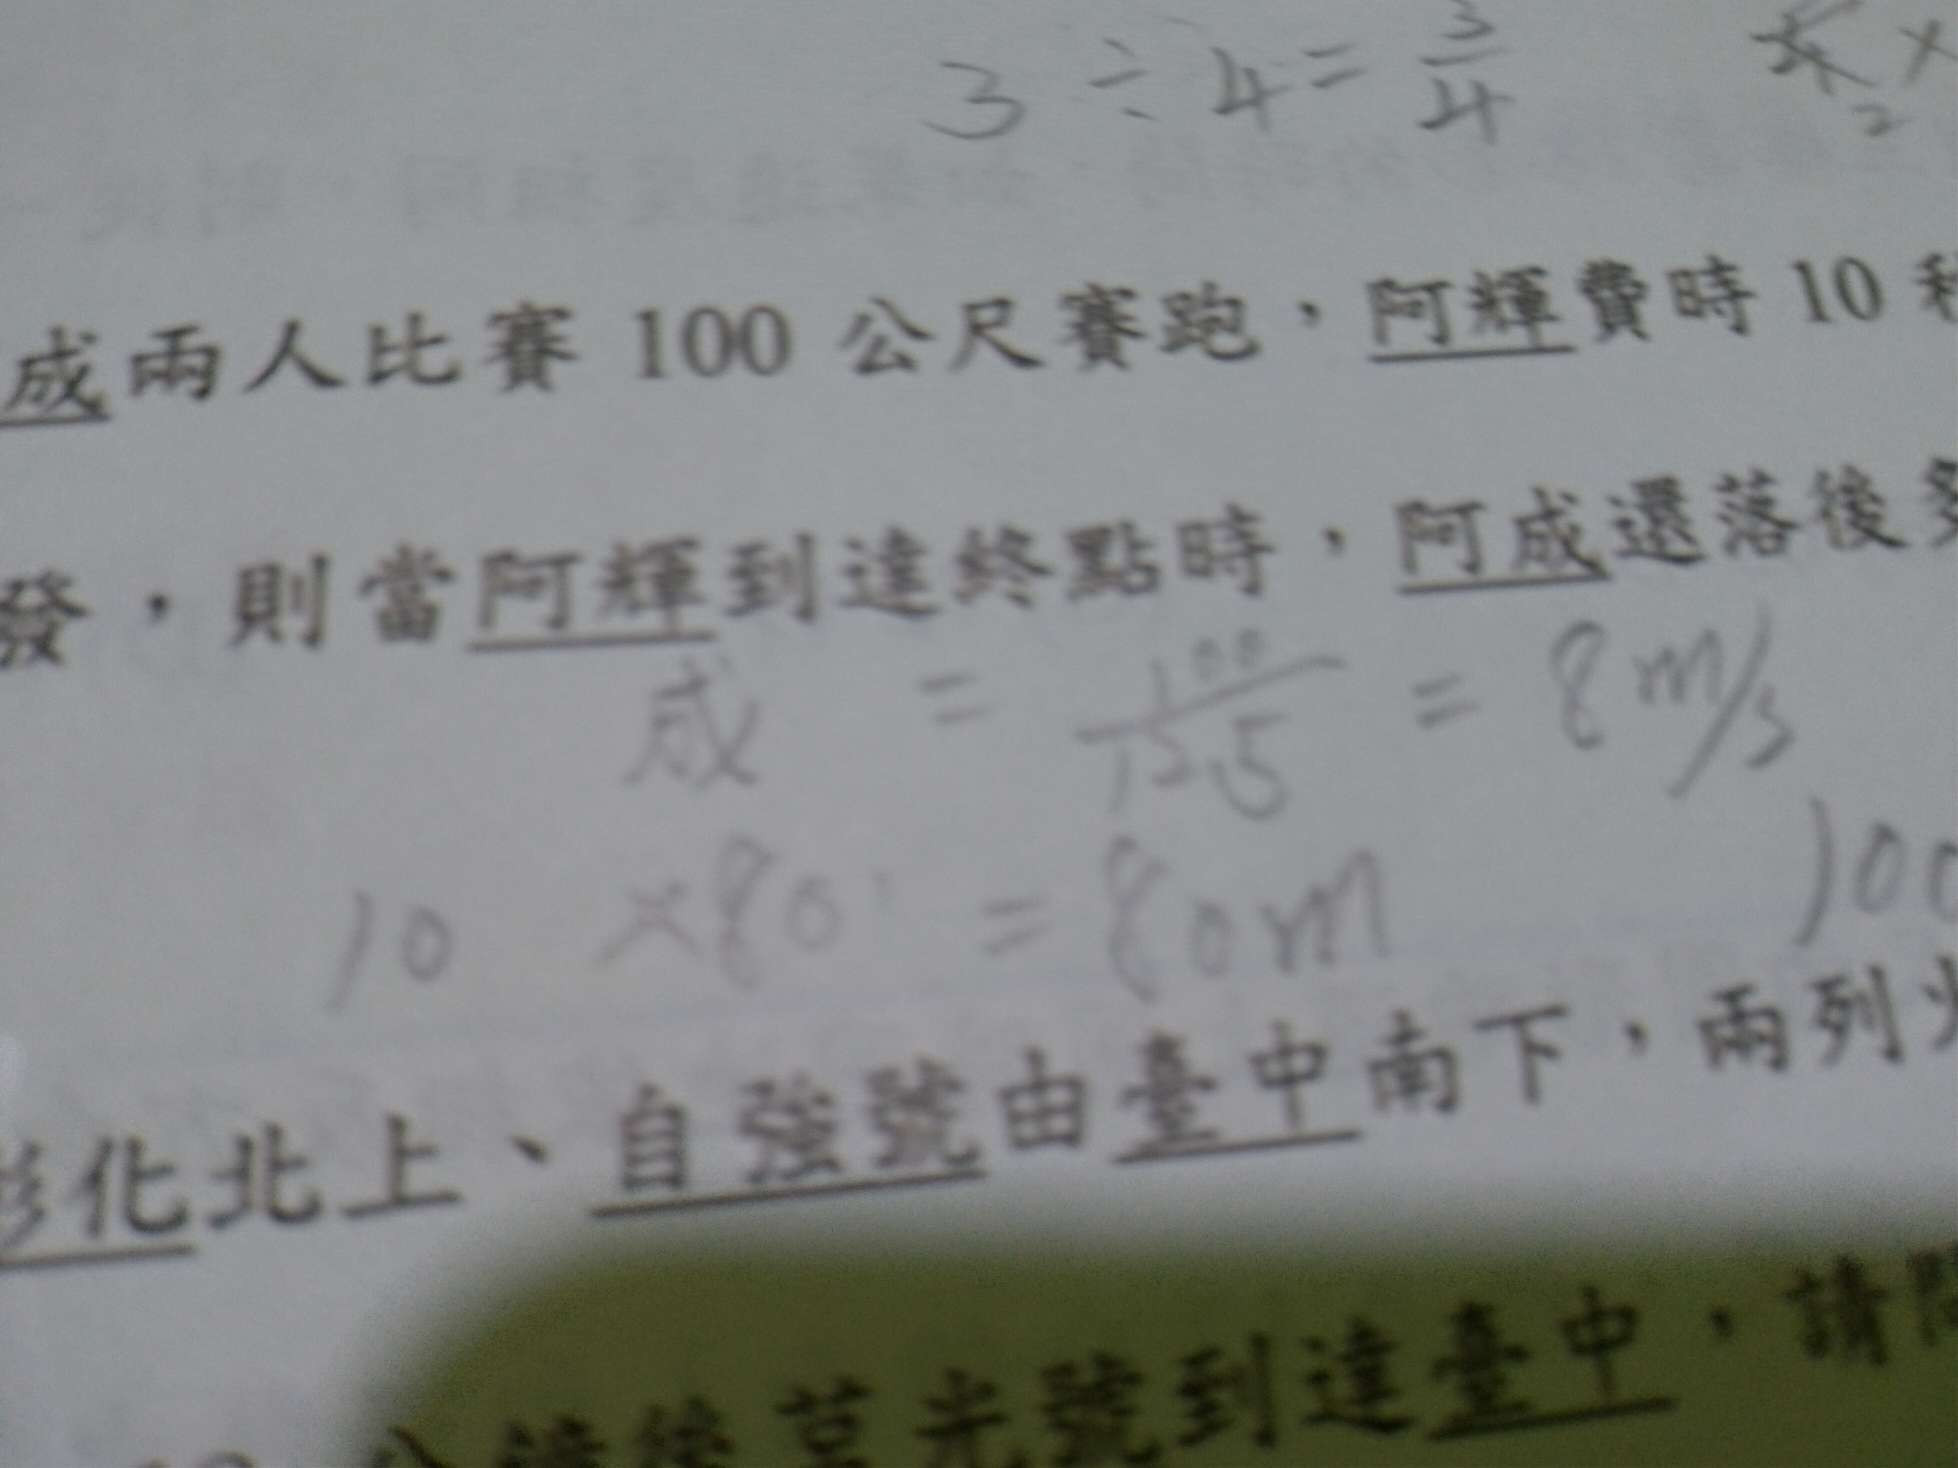 3 ÷ 4 = 3/4
成兩人比賽 100 公尺賽跑，阿輝費時 10
發，則當阿輝到達終點時，阿成還落後
成 = 100/12.5 = 8 m/s
10 ×80 = 80m 100
彰化北上、自強號由臺中南下，兩列
莒光號到達臺中，請